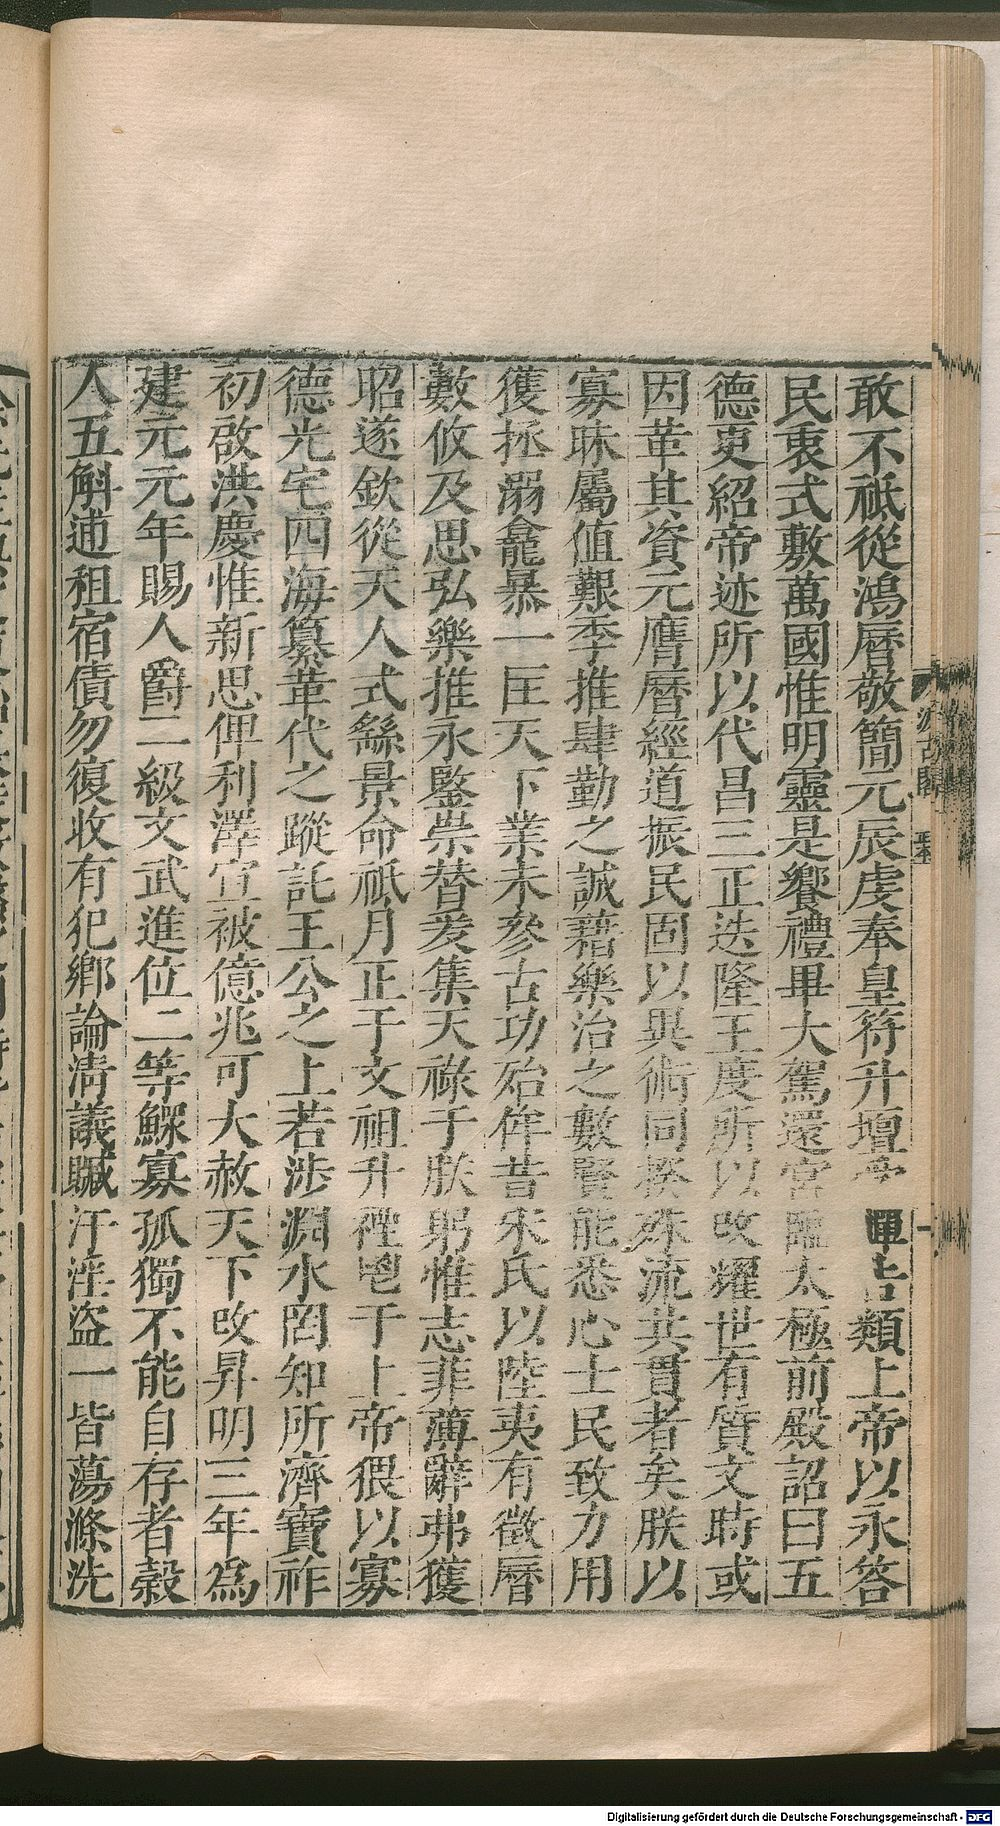 敢不祗從鴻曆敬簡元辰虔奉皇符升壇告類上帝以永答
民衷式敷萬國惟明靈是饗禮畢大駕還宮臨太極前殿詔曰五
德更紹帝迹所以代昌三正迭隆王度所以改耀世有質文時或
因革其資元膺曆經道振民固以異術同揆殊流共貫者矣朕以
寡昧屬值艱季推肆勤之誠藉樂治之數賢能悉心士民致力用
獲拯溺龕暴一匡天下業未參古功殆侔昔宋氏以陵夷有徵曆
數攸及思弘樂推永鑒崇替爰集天祿于朕躬惟志菲薄辭弗獲
昭遂欽從天人式繇景命祗月正于文祖升禋鬯于上帝猥以寡
德光宅四海纂革代之蹤託王公之上若涉淵水罔知所濟寶祚
初啟洪慶惟新思俾利澤宣被億兆可大赦天下改昇明三年為
建元元年賜人爵二級文武進位二等鰥寡孤獨不能自存者穀
人五斛逋租宿債勿復收有犯鄉論清議贓汙淫盜一皆蕩滌洗
汲古閣
Digitalisierung gefördert durch die Deutsche Forschungsgemeinschaft - DFG